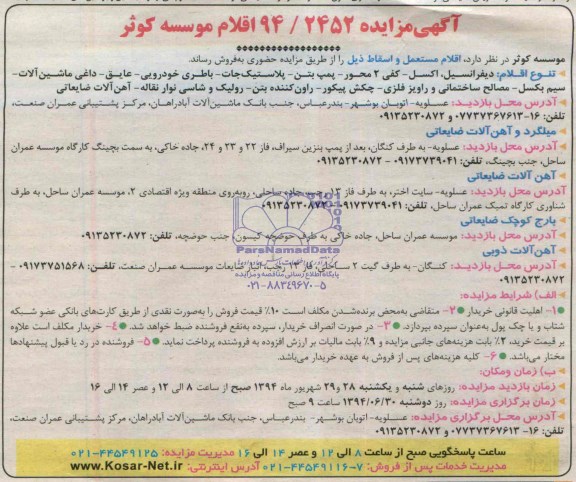 آگهی مزایده ۲۴۵۲ / ۹۴ اقلام موسسه کوثر
موسسه کوثر در نظر دارد، اقلام مستعمل و اسقاط ذیل را از طریق مزایده حضوری به‌فروش رساند.
تنوع اقلام: دیفرانسیل، اکسل- کفی ۲ محور- پمپ بتن- پلاستیک‌جات- باطری خودرویی- عایق- داغی ماشین‌آلات-
سیم بکسل- مصالح ساختمانی و راویز فلزی- چکش پیکور- راون‌کننده بتن- رولیک و شاسی نوار نقاله- آهن‌آلات ضایعاتی
آدرس محل بازدید: عسلویه- اتوبان بوشهر- بندرعباس، جنب بانک ماشین‌آلات آبادراهان، مرکز پشتیبانی عمران صنعت،
تلفن: ۱۶-۰۷۷۳۷۳۶۷۶۱۳ و ۰۹۱۳۵۲۳۰۸۷۲
میلگرد و آهن‌آلات ضایعاتی
آدرس محل بازدید: عسلویه- به طرف کنگان، بعد از پمپ بنزین سیراف، فاز ۲۲ و ۲۳ و ۲۴، جاده خاکی، به سمت بچینگ کارگاه موسسه عمران
ساحل، جنب بچینگ، تلفن: ۰۹۱۷۳۷۳۹۰۴۱ - ۰۹۱۳۵۲۳۰۸۷۲
آهن آلات ضایعاتی
آدرس محل بازدید: عسلویه- سایت اختر، به طرف فاز ۱۳ رجب، جاده ساحلی، روبه‌روی منطقه ویژه اقتصادی ۲، موسسه عمران ساحل، به طرف
شناوری کارگاه تمبک عمران ساحل، تلفن: ۰۹۱۷۳۷۳۹۰۴۱- ۰۹۱۳۵۲۳۰۸۷۲
بارج کوچک ضایعاتی
آدرس محل بازدید: موسسه عمران ساحل، جاده خاکی به طرف حوضچه کیسون جنب حوضچه، تلفن: ۰۹۱۳۵۲۳۰۸۷۲
آهن‌آلات ذوبی
آدرس محل بازدید: کنگان- به طرف گیت ۲ ساحلی، فاز ۱۳ رجب، انبار ضایعات موسسه عمران صنعت، تلفن: ۰۹۱۷۳۷۵۱۵۶۸ -
۰۹۱۳۵۲۳۰۸۷۲
ParsNamadData
پایگاه اطلاع رسانی مناقصه و مزایده
۰۲۱-۸۸۳۴۹۶۷۰-۵
الف) شرایط مزایده:
۱- اهلیت قانونی خریدار ۲- متقاضی به‌محض برنده‌شدن مکلف است ۱۰٪ قیمت فروش را به‌صورت نقدی از طریق کارت‌های بانکی عضو شبکه
شتاب و یا چک پول به‌عنوان سپرده بپردازد. ۳- در صورت انصراف خریدار، سپرده به‌نفع فروشنده ضبط خواهد شد. ۴- خریدار مکلف است علاوه
بر قیمت خرید، ۲٪ بابت هزینه‌های جانبی مزایده و ۹٪ بابت مالیات بر ارزش افزوده به فروشنده پرداخت نماید. ۵- فروشنده در رد یا قبول پیشنهادها
مختار می‌باشد. ۶- کلیه هزینه‌های پس از فروش به عهده خریدار می‌باشد.
ب) زمان ومکان:
زمان بازدید مزایده: روزهای شنبه و یکشنبه ۲۸ و ۲۹ شهریور ماه ۱۳۹۴ صبح از ساعت ۸ الی ۱۲ و عصر ۱۴ الی ۱۶
زمان برگزاری مزایده: روز دوشنبه ۱۳۹۴/۰۶/۳۰ ساعت ۹ صبح
آدرس محل برگزاری مزایده: عسلویه- اتوبان بوشهر- بندرعباس، جنب بانک ماشین‌آلات آبادراهان، مرکز پشتیبانی عمران صنعت،
تلفن: ۱۶- ۰۷۷۳۷۳۶۷۶۱۳ و ۰۹۱۳۵۲۳۰۸۷۲
ساعت پاسخگویی صبح از ساعت ۸ الی ۱۲ و عصر ۱۴ الی ۱۶ مدیریت مزایده: ۰۲۱-۴۴۵۴۹۱۲۵
مدیریت خدمات پس از فروش: ۷-۰۲۱-۴۴۵۴۹۱۱۶ آدرس اینترنتی: www.Kosar-Net.ir